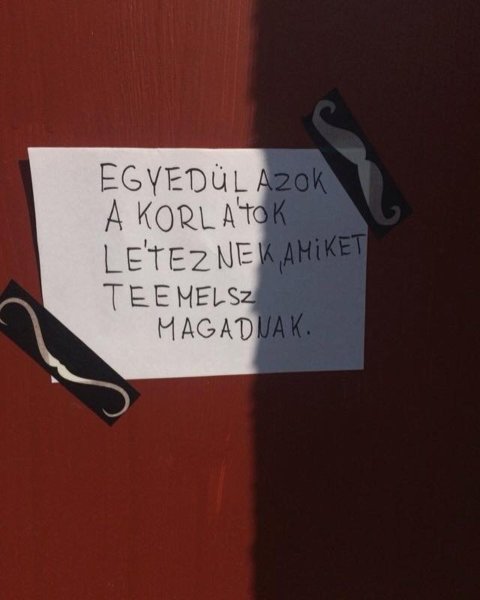 EGYEDÜL AZOK
A KORLÁTOK
LÉTEZNEK, AMiKET
TE EMELSZ
MAGADNAK.